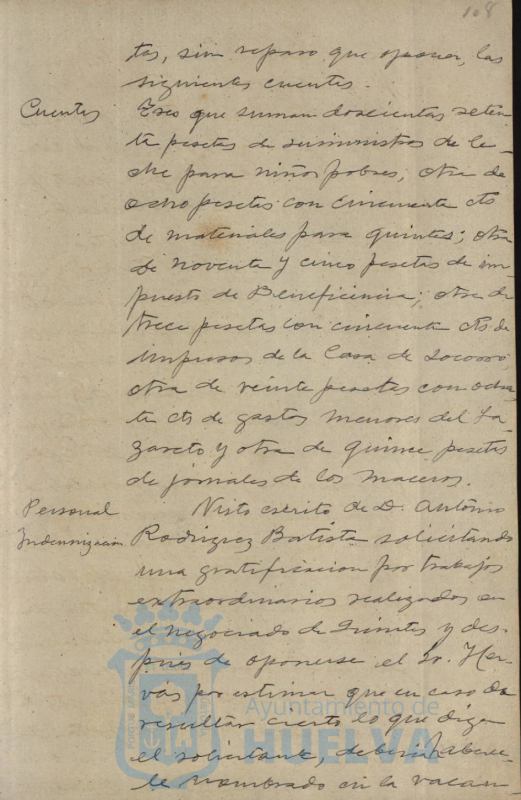 108
tas, sin reparo que oponer, las
siguientes cuentas.
Cuentas Tres que suman doscientas seten
ta pesetas de suministros de le-
che para niños pobres; otra de
ocho pesetas con cincuenta cts
de materiales para quintas; otra
de noventa y cinco pesetas de im-
puesto de Beneficencia; otra de
trece pesetas con cincuenta cts de
impresos de la Casa de Socorro;
otra de veinte pesetas con ochen
ta cts de gastos menores del La-
zareto y otra de quince pesetas
de jornales de los maceros.
Personal Visto escrito de D. Antonio
Indemnización Rodriguez Bautista solicitando
una gratificacion por trabajos
extraordinarios realizados en
el negociado de Quintas y des-
pués de oponerse el Sr. Her-
vas por estimar que en caso de
resultar cierto lo que dice
el solicitante, deberia haberse-
le nombrado en la vacan-
Ayuntamiento de
HUELVA